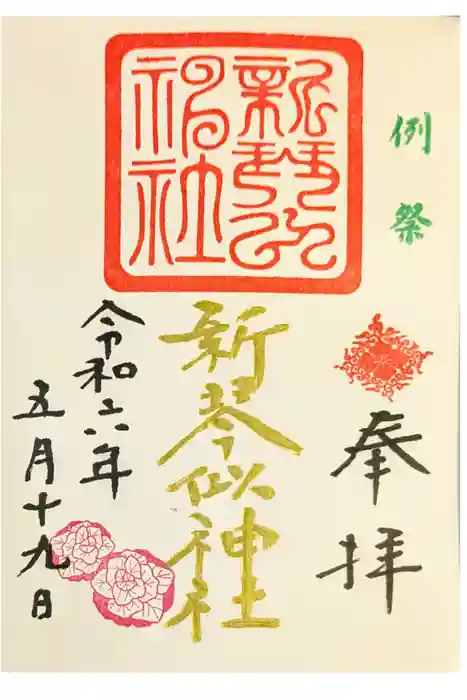 例祭
奉拝
新琴似
神社
新琴似神社
令和六年
五月十九日